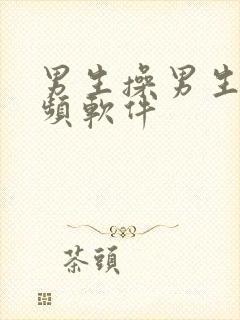 男生操男生
頻軟件
茶頭